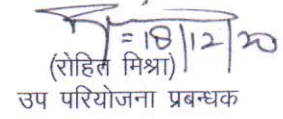 18/12/20
(रोहित मिश्रा)
उप परियोजना प्रबन्धक